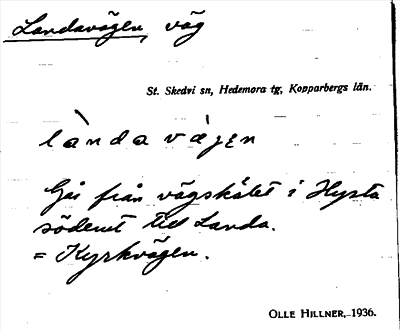 Landavägen, väg
St. Skedvi sn, Hedemora tg, Kopparbergs län.
lànda vägen
Går från vägskälet i Hysta
söderut till Landa.
= Kyrkvägen.
OLLE HILLNER, 1936.